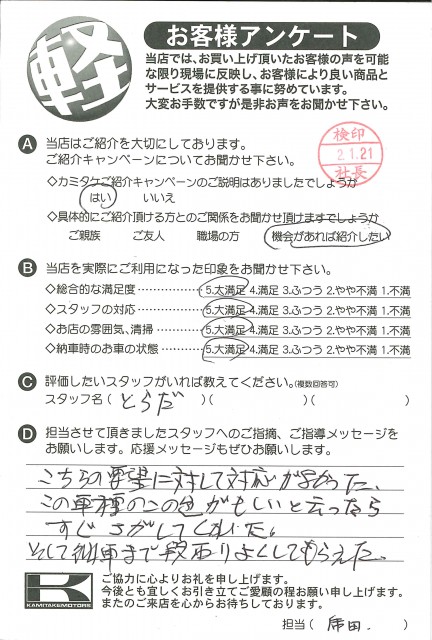 軽
お客様アンケート
当店では、お買い上げ頂いたお客様の声を可能
な限り現場に反映し、お客様により良い商品と
サービスを提供する事に努めています。
大変お手数ですが是非お声をお聞かせ下さい。
検印
2.1.21
社長
A 当店はご紹介を大切にしております。
ご紹介キャンペーンについてお聞かせ下さい。
◇カミタケご紹介キャンペーンのご説明はありましたでしょうか
はい いいえ
◇具体的にご紹介頂ける方とのご関係をお聞かせ頂けますでしょうか
ご親族 ご友人 職場の方 機会があれば紹介したい
B 当店を実際にご利用になった印象をお聞かせ下さい。
◇総合的な満足度 ……………… 5.大満足 4.満足 3.ふつう 2.やや不満 1.不満
◇スタッフの対応 ……………… 5.大満足 4.満足 3.ふつう 2.やや不満 1.不満
◇お店の雰囲気、清掃 ………… 5.大満足 4.満足 3.ふつう 2.やや不満 1.不満
◇納車時のお車の状態 ………… 5.大満足 4.満足 3.ふつう 2.やや不満 1.不満
C 評価したいスタッフがいれば教えてください。(複数回答可)
スタッフ名 ( とらだ )( )( )
D 担当させて頂きましたスタッフへのご指摘、ご指導メッセージを
お願いします。応援メッセージもぜひお願いします。
こちらの要望に対して対応が早かった。
この車種のこの色がもしいと云ったら
すぐさがしてくれた。
そして納車まで段取りよくしてもらえた。
KAMITAKEMOTORS
ご協力に心よりお礼を申し上げます。
今後とも宜しくお引き立てご愛顧の程お願い申し上げます。
またのご来店を心からお待ちしております。
担当 ( 席田. )